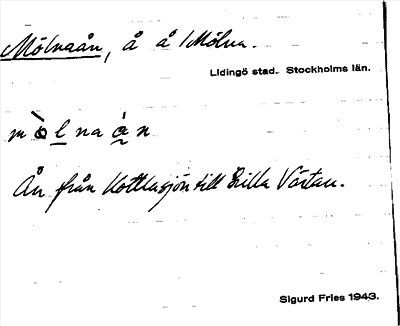 Mölnaån, å å Mölna.
Lidingö stad. Stockholms län.
mòlnaån
Ån från Kottlasjön till Lilla Värtan.
Sigurd Fries 1943.